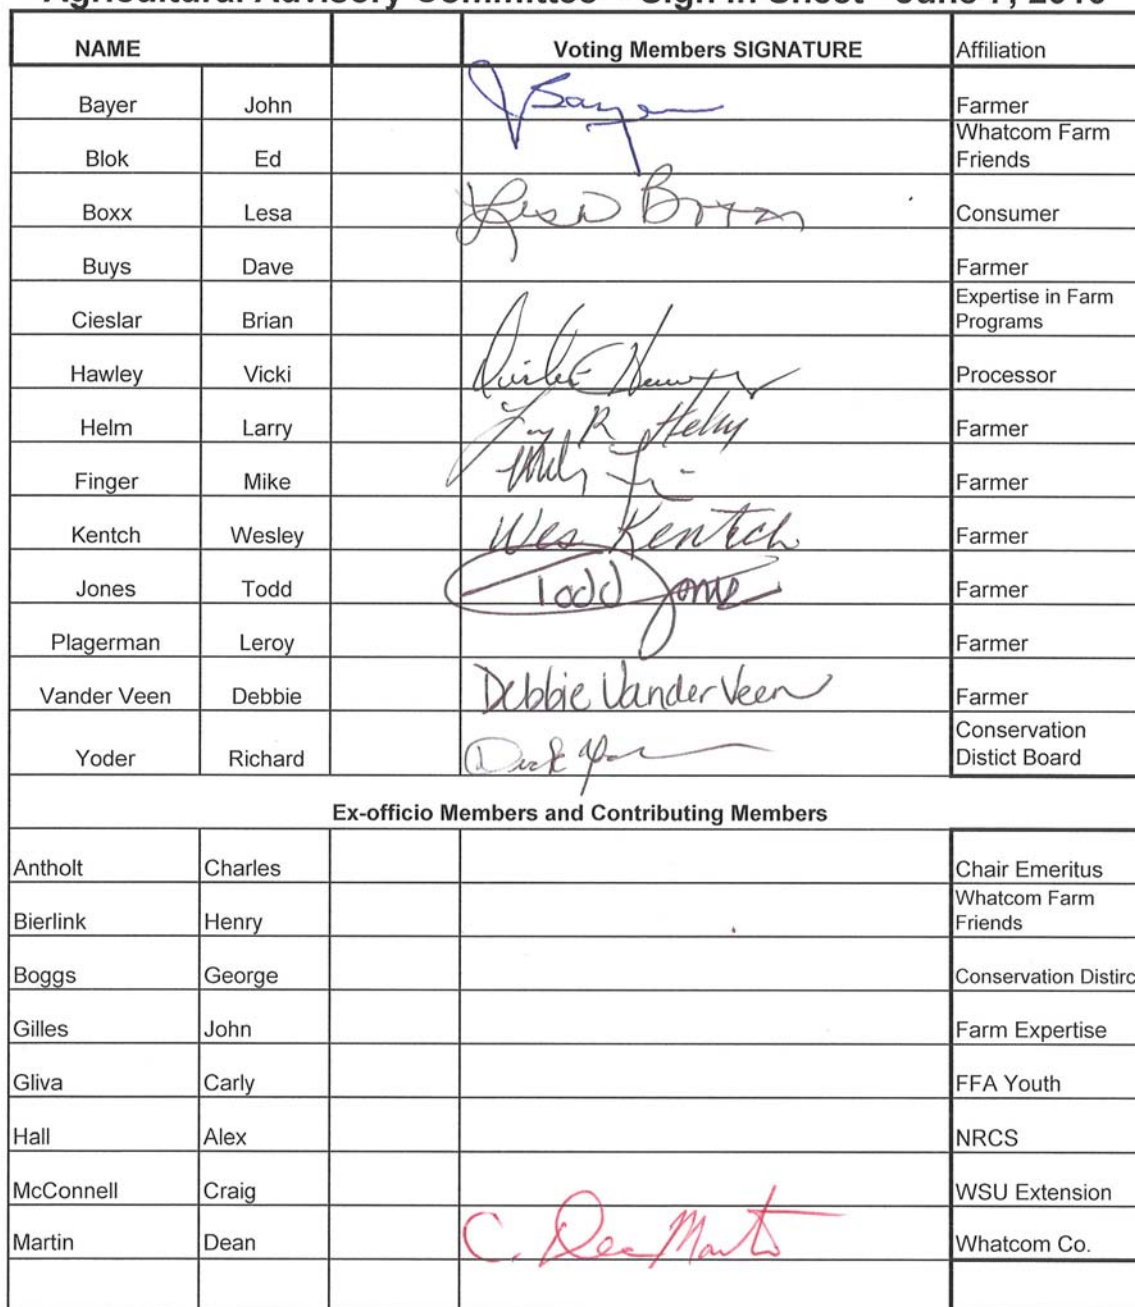 Agricultural Advisory Committee - Sign in Sheet - June 7, 2010
NAME Voting Members SIGNATURE Affiliation
Bayer John Farmer
Blok Ed Whatcom Farm Friends
Boxx Lesa Lesa Boxx Consumer
Buys Dave Farmer
Cieslar Brian Expertise in Farm Programs
Hawley Vicki Processor
Helm Larry Larry R Helm Farmer
Finger Mike Farmer
Kentch Wesley Wes Kentch Farmer
Jones Todd Todd Jones Farmer
Plagerman Leroy Farmer
Vander Veen Debbie Debbie Vander Veen Farmer
Yoder Richard Conservation Distict Board
Ex-officio Members and Contributing Members
Antholt Charles Chair Emeritus
Bierlink Henry Whatcom Farm Friends
Boggs George Conservation Distirc
Gilles John Farm Expertise
Gliva Carly FFA Youth
Hall Alex NRCS
McConnell Craig WSU Extension
Martin Dean C. Dean Martin Whatcom Co.